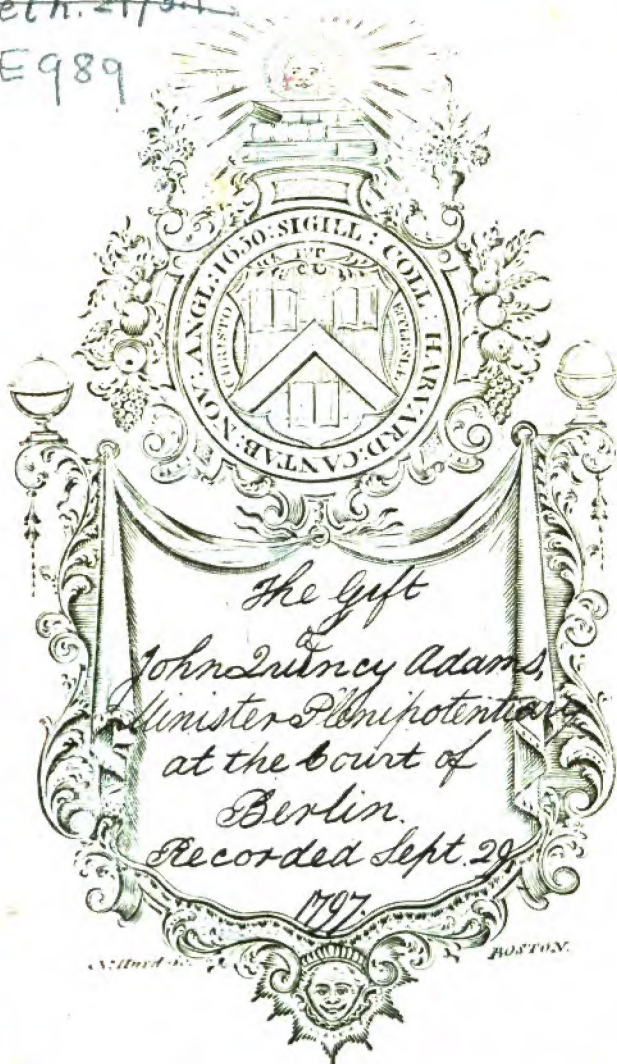 E989
SIGILL : COLL : HARVARD : CANTAB : NOV : ANGL : 1650 :
ET
CHRISTO
ECCLESIÆ
The Gift
of
John Quincy Adams,
Minister Plenipotentiary
at the Court of
Berlin.
Recorded Sept. 29
1797.
BOSTON.